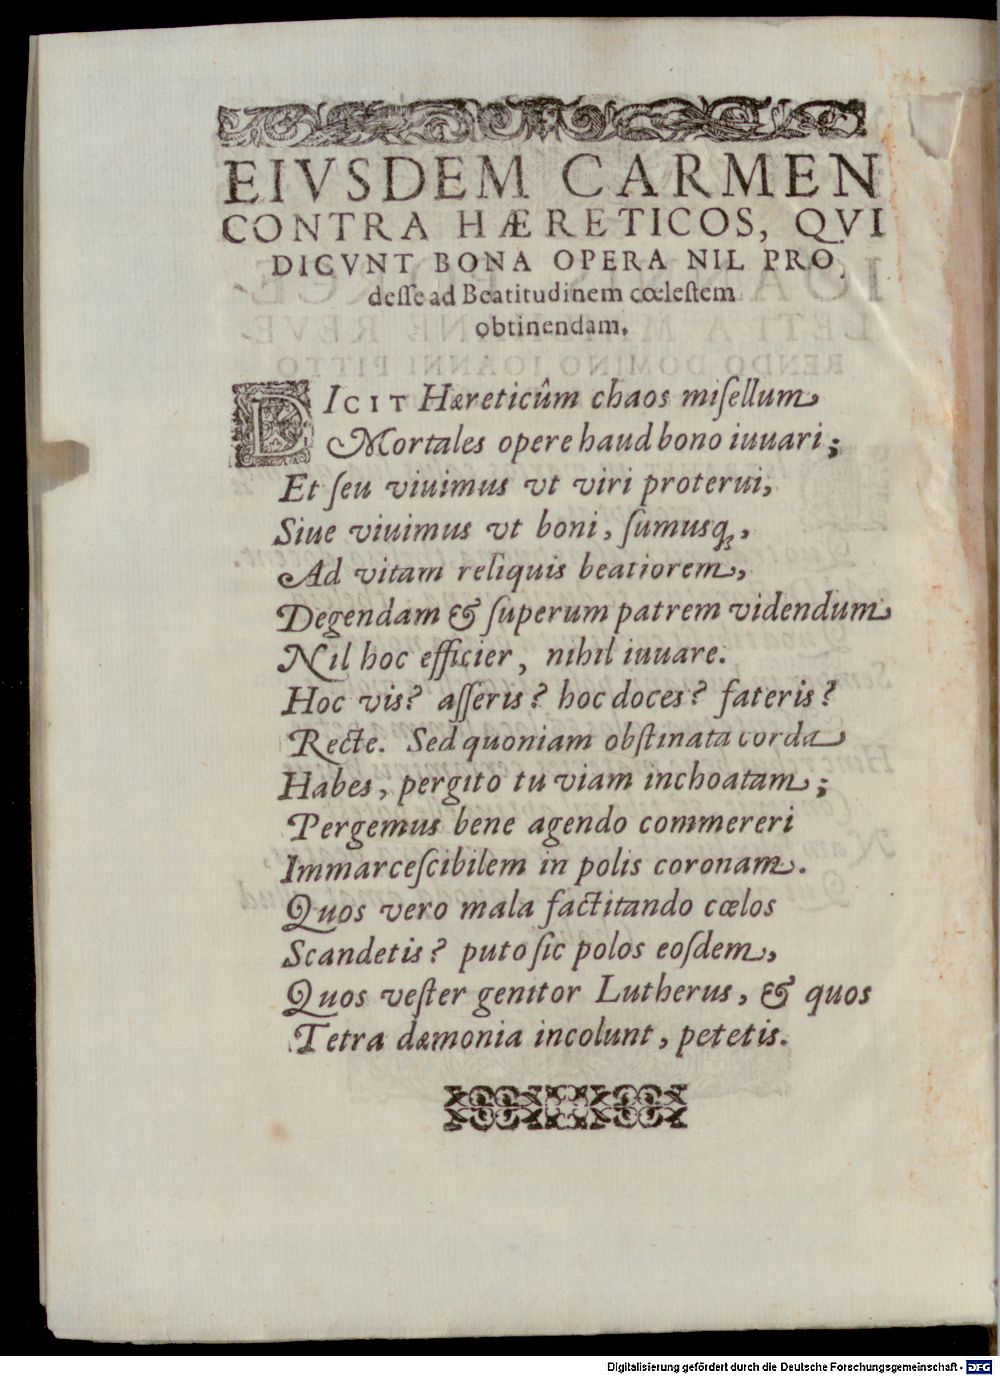 EIVSDEM CARMEN
CONTRA HÆRETICOS, QVI
DICVNT BONA OPERA NIL PRO
desse ad Beatitudinem cœlestem
obtinendam.
DICIT Hæreticûm chaos misellum
Mortales opere haud bono iuuari;
Et seu viuimus vt viri proterui,
Siue viuimus vt boni, sumusq́ꝫ,
Ad vitam reliquis beatiorem,
Degendam & superum patrem videndum
Nil hoc efficier, nihil iuuare.
Hoc vis? asseris? hoc doces? fateris?
Recte. Sed quoniam obstinata corda
Habes, pergito tu viam inchoatam;
Pergemus bene agendo commereri
Immarcescibilem in polis coronam.
Quos vero mala factitando cœlos
Scandetis? puto sic polos eosdem,
Quos vester genitor Lutherus, & quos
Tetra dæmonia incolunt, petetis.
Digitalisierung gefördert durch die Deutsche Forschungsgemeinschaft - DFG